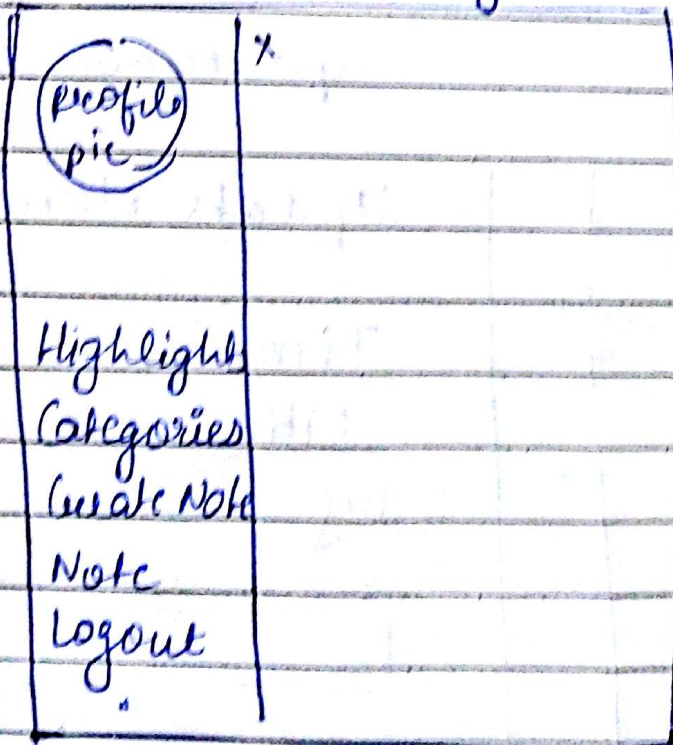 Profile
pic
Highlights
Categories
Create Note
Note
Logout